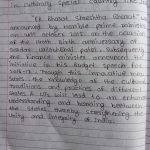 In culturally special country like
"Ek Bharat Shreshtha Bharat" was
announced by honble prime minister
on 31st october 2015 on the occasion
of the 140th birth anniversary of
sardar vallabhbhai patel. Subsequently
the finance minister announced the
initiative in his budget speech for
2016-17. Through this innovative measure
the knowledge of the culture
traditions and practices of different
states & UTs will lead to an enhanced
understanding and bonding between
the states, thereby strengthening the
unity and integrity of India.